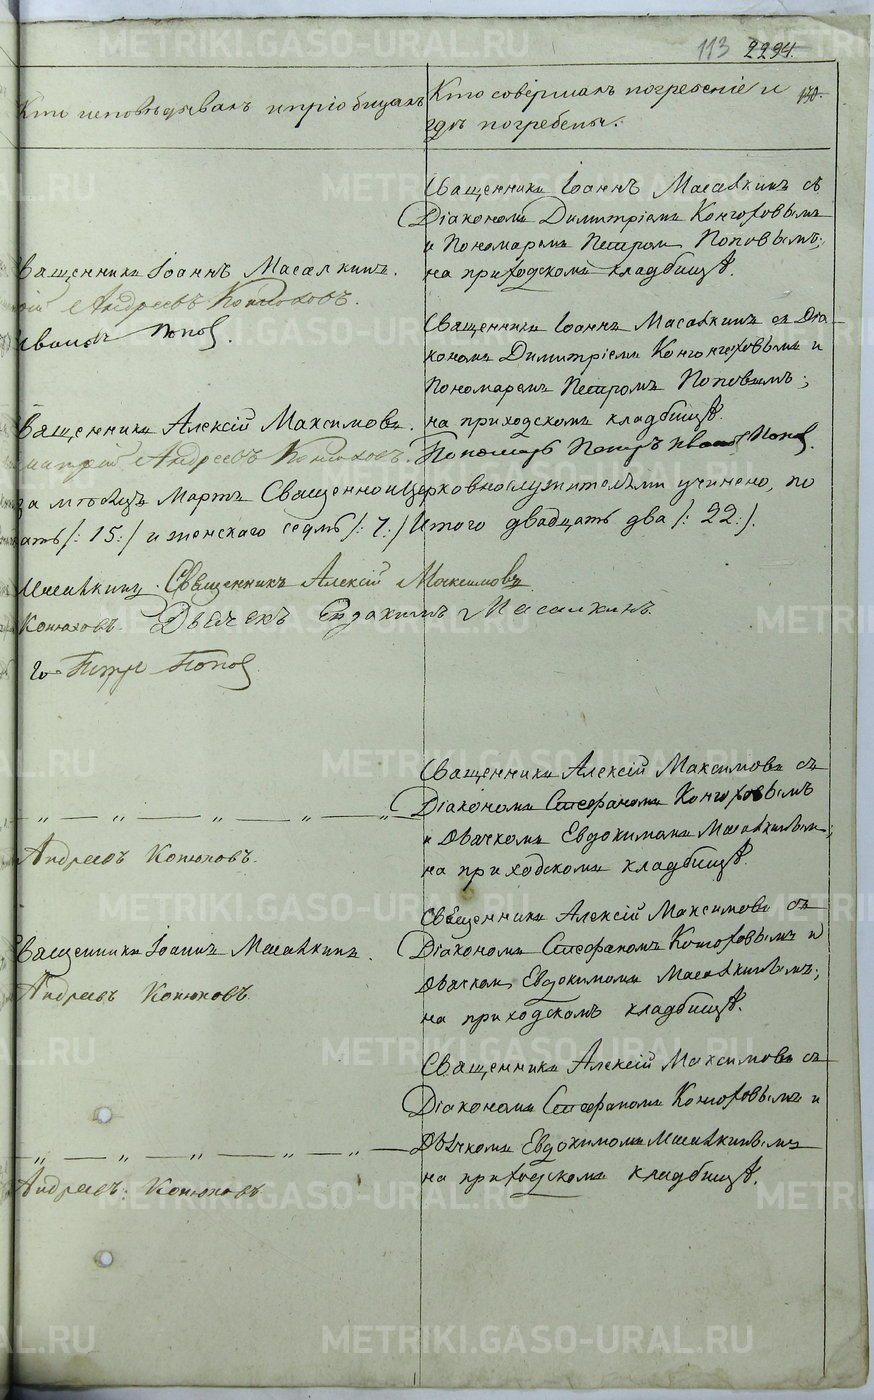 113 2294.
Кто исповѣдывалъ и пріобщалъ
Кто совершалъ погребеніе и
гдѣ погребены.
170.
Священникъ Іоаннъ Масалкинъ съ
Діакономъ Димитріемъ Конюховымъ
и Пономаремъ Петромъ Поповымъ;
на приходскомъ кладбищѣ.
Священникъ Іоаннъ Масалкинъ.
Андреевъ Конюховъ.
Ивановъ Поповъ.
Священникъ Іоаннъ Масалкинъ съ Діа-
кономъ Димитріемъ Конюховымъ и
Пономаремъ Петромъ Поповымъ;
на приходскомъ кладбищѣ.
Священникъ Алексій Максимовъ.
Андреевъ Конюховъ. Пономарь Петръ Ивановъ Поповъ.
за мѣсяцъ Мартъ Священноцерковнослужителями учинено, по
ать /: 15 :/ и женскаго седмь /: 7 :/ Итого двадцать два /: 22 :/.
Масалкинъ. Священникъ Алексій Максимовъ
Конюховъ. Дьячекъ Евдокимъ Масалкинъ.
Петръ Поповъ
Священникъ Алексій Максимовъ съ
Діакономъ Стефаномъ Конюховымъ
и дьячкомъ Евдокимомъ Масалкинымъ;
на приходскомъ кладбищѣ.
— „ — „ — „ — „ —
Андреевъ Конюховъ.
Священникъ Алексій Максимовъ съ
Діакономъ Стефаномъ Конюховымъ и
дьячкомъ Евдокимомъ Масалкинымъ;
на приходскомъ кладбищѣ.
Священникъ Іоаннъ Масалкинъ.
Андреевъ Конюховъ.
Священникъ Алексій Максимовъ съ
Діакономъ Стефаномъ Конюховымъ и
Дьячкомъ Евдокимомъ Масалкинымъ
на приходскомъ кладбищѣ.
— „ — „ — „ — „ — „ —
Андреевъ Конюховъ
METRIKI.GASO-URAL.RU